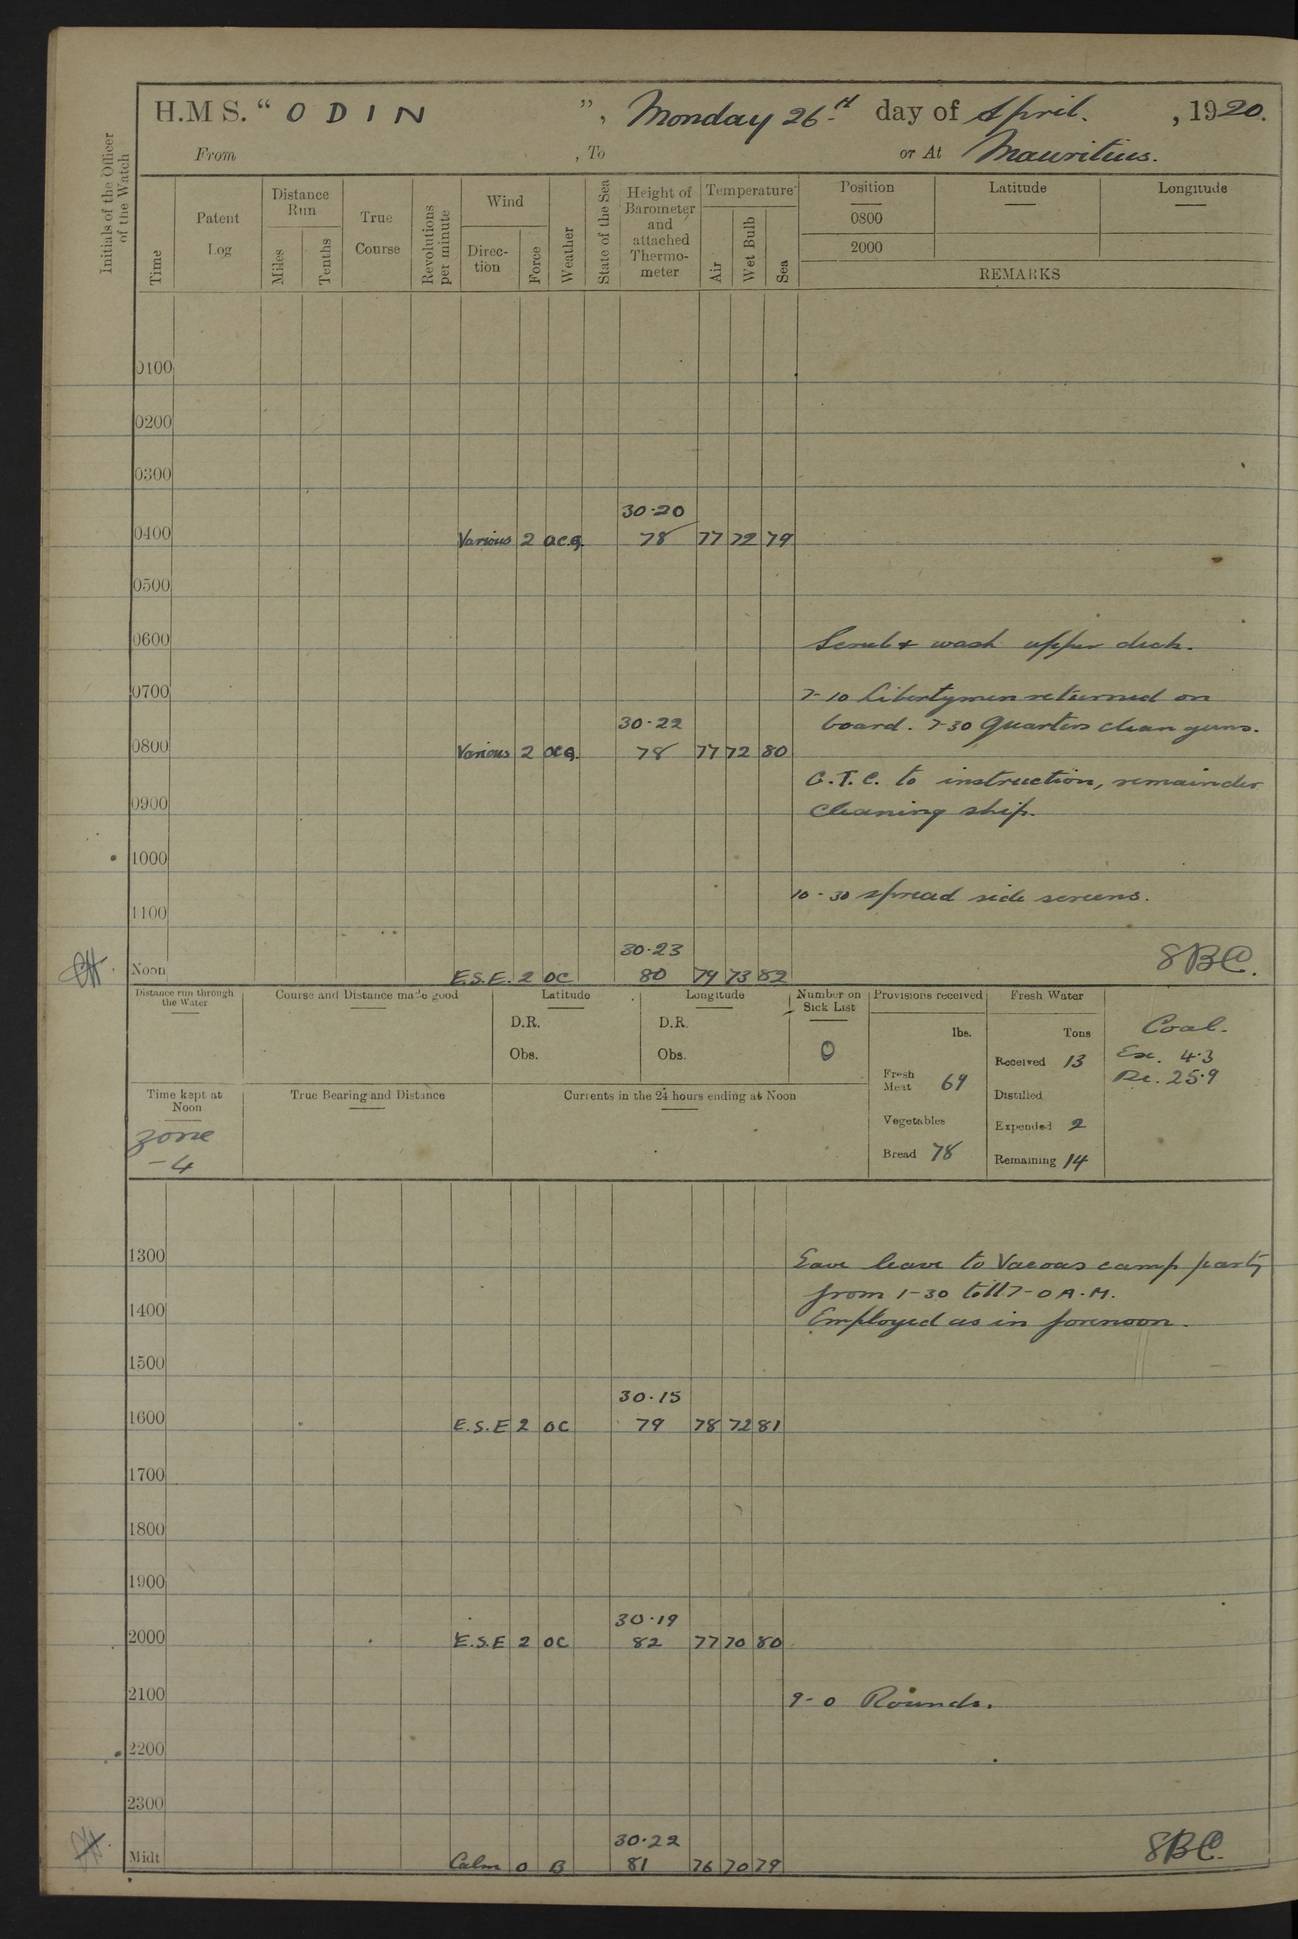 H.M S. “ O D I N ”, Monday 26 day of April. , 1920.
From , To or At Mauritius.
Initials of the Officer
of the Watch
Time
Patent
Log
Distance
Run
Miles
Tenths
True
Course
Revolutions
per minute
Wind
Direc-
tion
Force
Weather
State of the Sea
Height of
Barometer
and
attached
Thermo-
meter
Temperature
Air
Wet Bulb
Sea
Position Latitude Longitude
0800
2000
REMARKS
0100
0200
0300
30·20
0400 Various 2 78 77 72 79
0500
0600 Scrub & wash upper deck.
0700 7-10 Libertymen returned on
30·22 board. 7-30 Quarters clean guns.
0800 Various 2 78 77 72 80
G.T.C. to instruction, remainder
0900 cleaning ship.
1000
10-30 spread side screens.
1100
30·23
Noon E.S.E. 2 OC 80 79 73 82
Distance run through
the Water
Course and Distance made good
Latitude
D.R.
Obs.
Longitude
D.R.
Obs.
Number on
Sick List
0
Provisions received
lbs.
Fresh
Meat 69
Vegetables
Bread 78
Fresh Water
Tons
Received 13
Distilled
Expended 2
Remaining 14
Coal.
Ex. 4·3
Re. 25·9
Time kept at
Noon
zone
-4
True Bearing and Distance
Currents in the 24 hours ending at Noon
1300 Gave leave to Vacoas camp party
from 1-30 till 7-0 A.M.
1400 Employed as in forenoon.
1500
30·15
1600 E.S.E 2 OC 79 78 72 81
1700
1800
1900
30·19
2000 E.S.E 2 OC 82 77 70 80
2100 9-0 Rounds.
2200
2300
30·22
Midt Calm 0 B 81 76 70 79